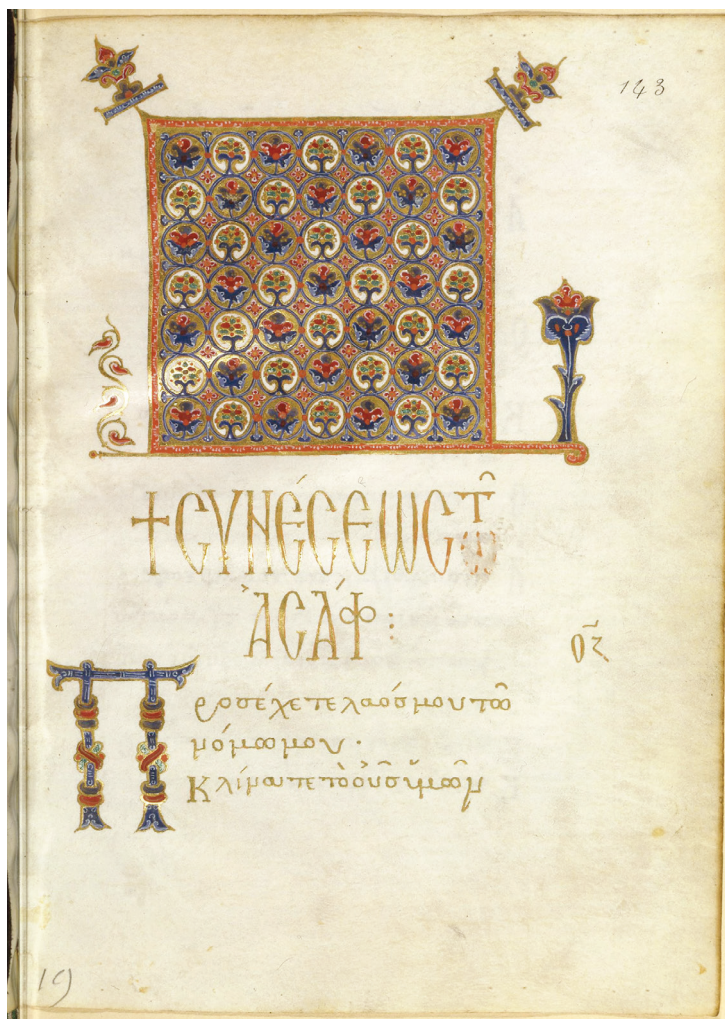 143
+ CΥΝΈCΕΩC Τῶ
ἈCΆΦ :
οζ
Προσέχετε λαόσ μου τῶ
νόμω μου ·
Κλίνατε τὸ οὖσ ὑμῶν
19